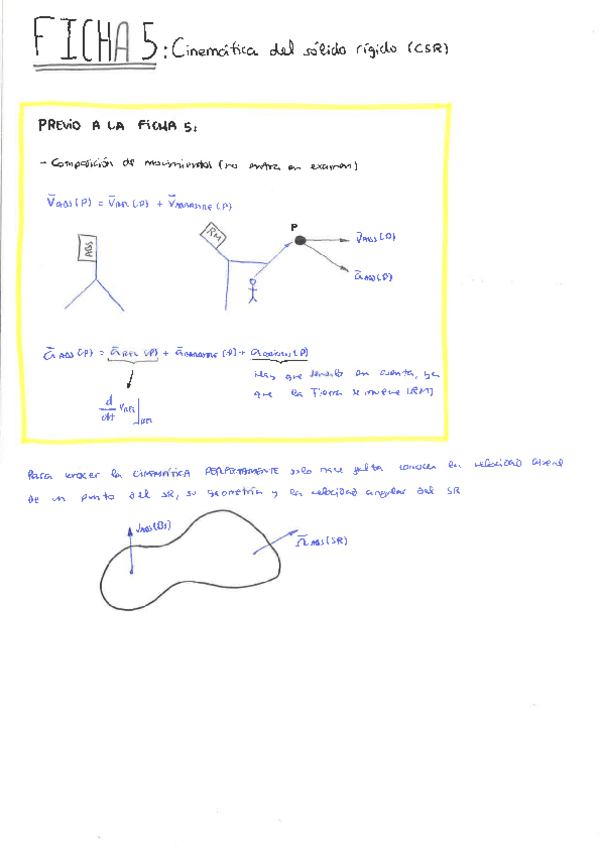 FICHA 5: Cinemática del sólido rígido (CSR)
PREVIO A LA FICHA 5:
- Composición de movimientos (no entra en examen)
V̄ABS(P) = V̄REL(P) + V̄ARRASTRE(P)
ABS
RM
P
V̄ABS(P)
āABS(P)
āABS(P) = āREL(P) + āARRASTRE(P) + āCORIOLIS(P)
Hay que tenerlo en cuenta, ya
que la Tierra se mueve (RM)
d/dt VREL]REL
Para conocer la CINEMÁTICA PERFECTAMENTE solo hace falta conocer la velocidad lineal
de un punto del SR, su geometría y la velocidad angular del SR
V̄ABS(Os)
Ω̄ABS(SR)